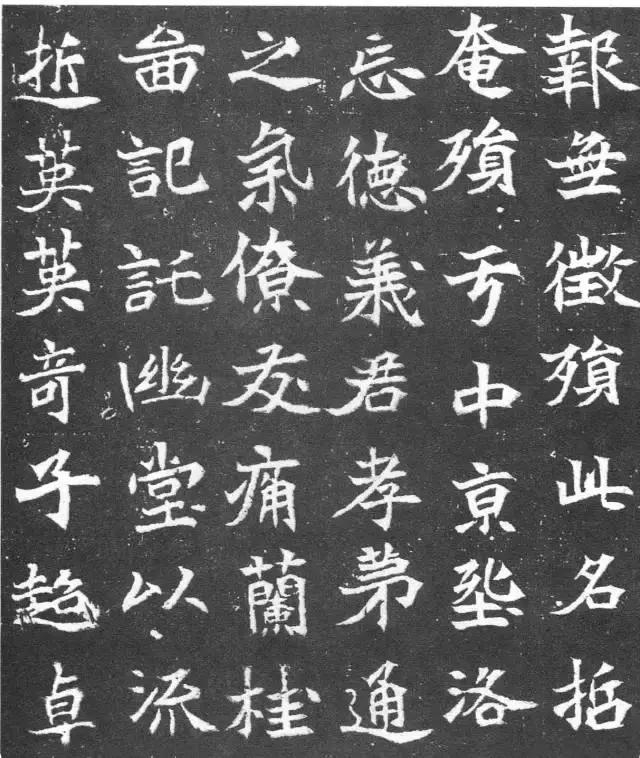 報無徵殞此名哲
奄殞于中京洛
忘德義君孝弟通
之氣僚友痛蘭桂
啚記託幽堂以流
逝英英奇子超卓